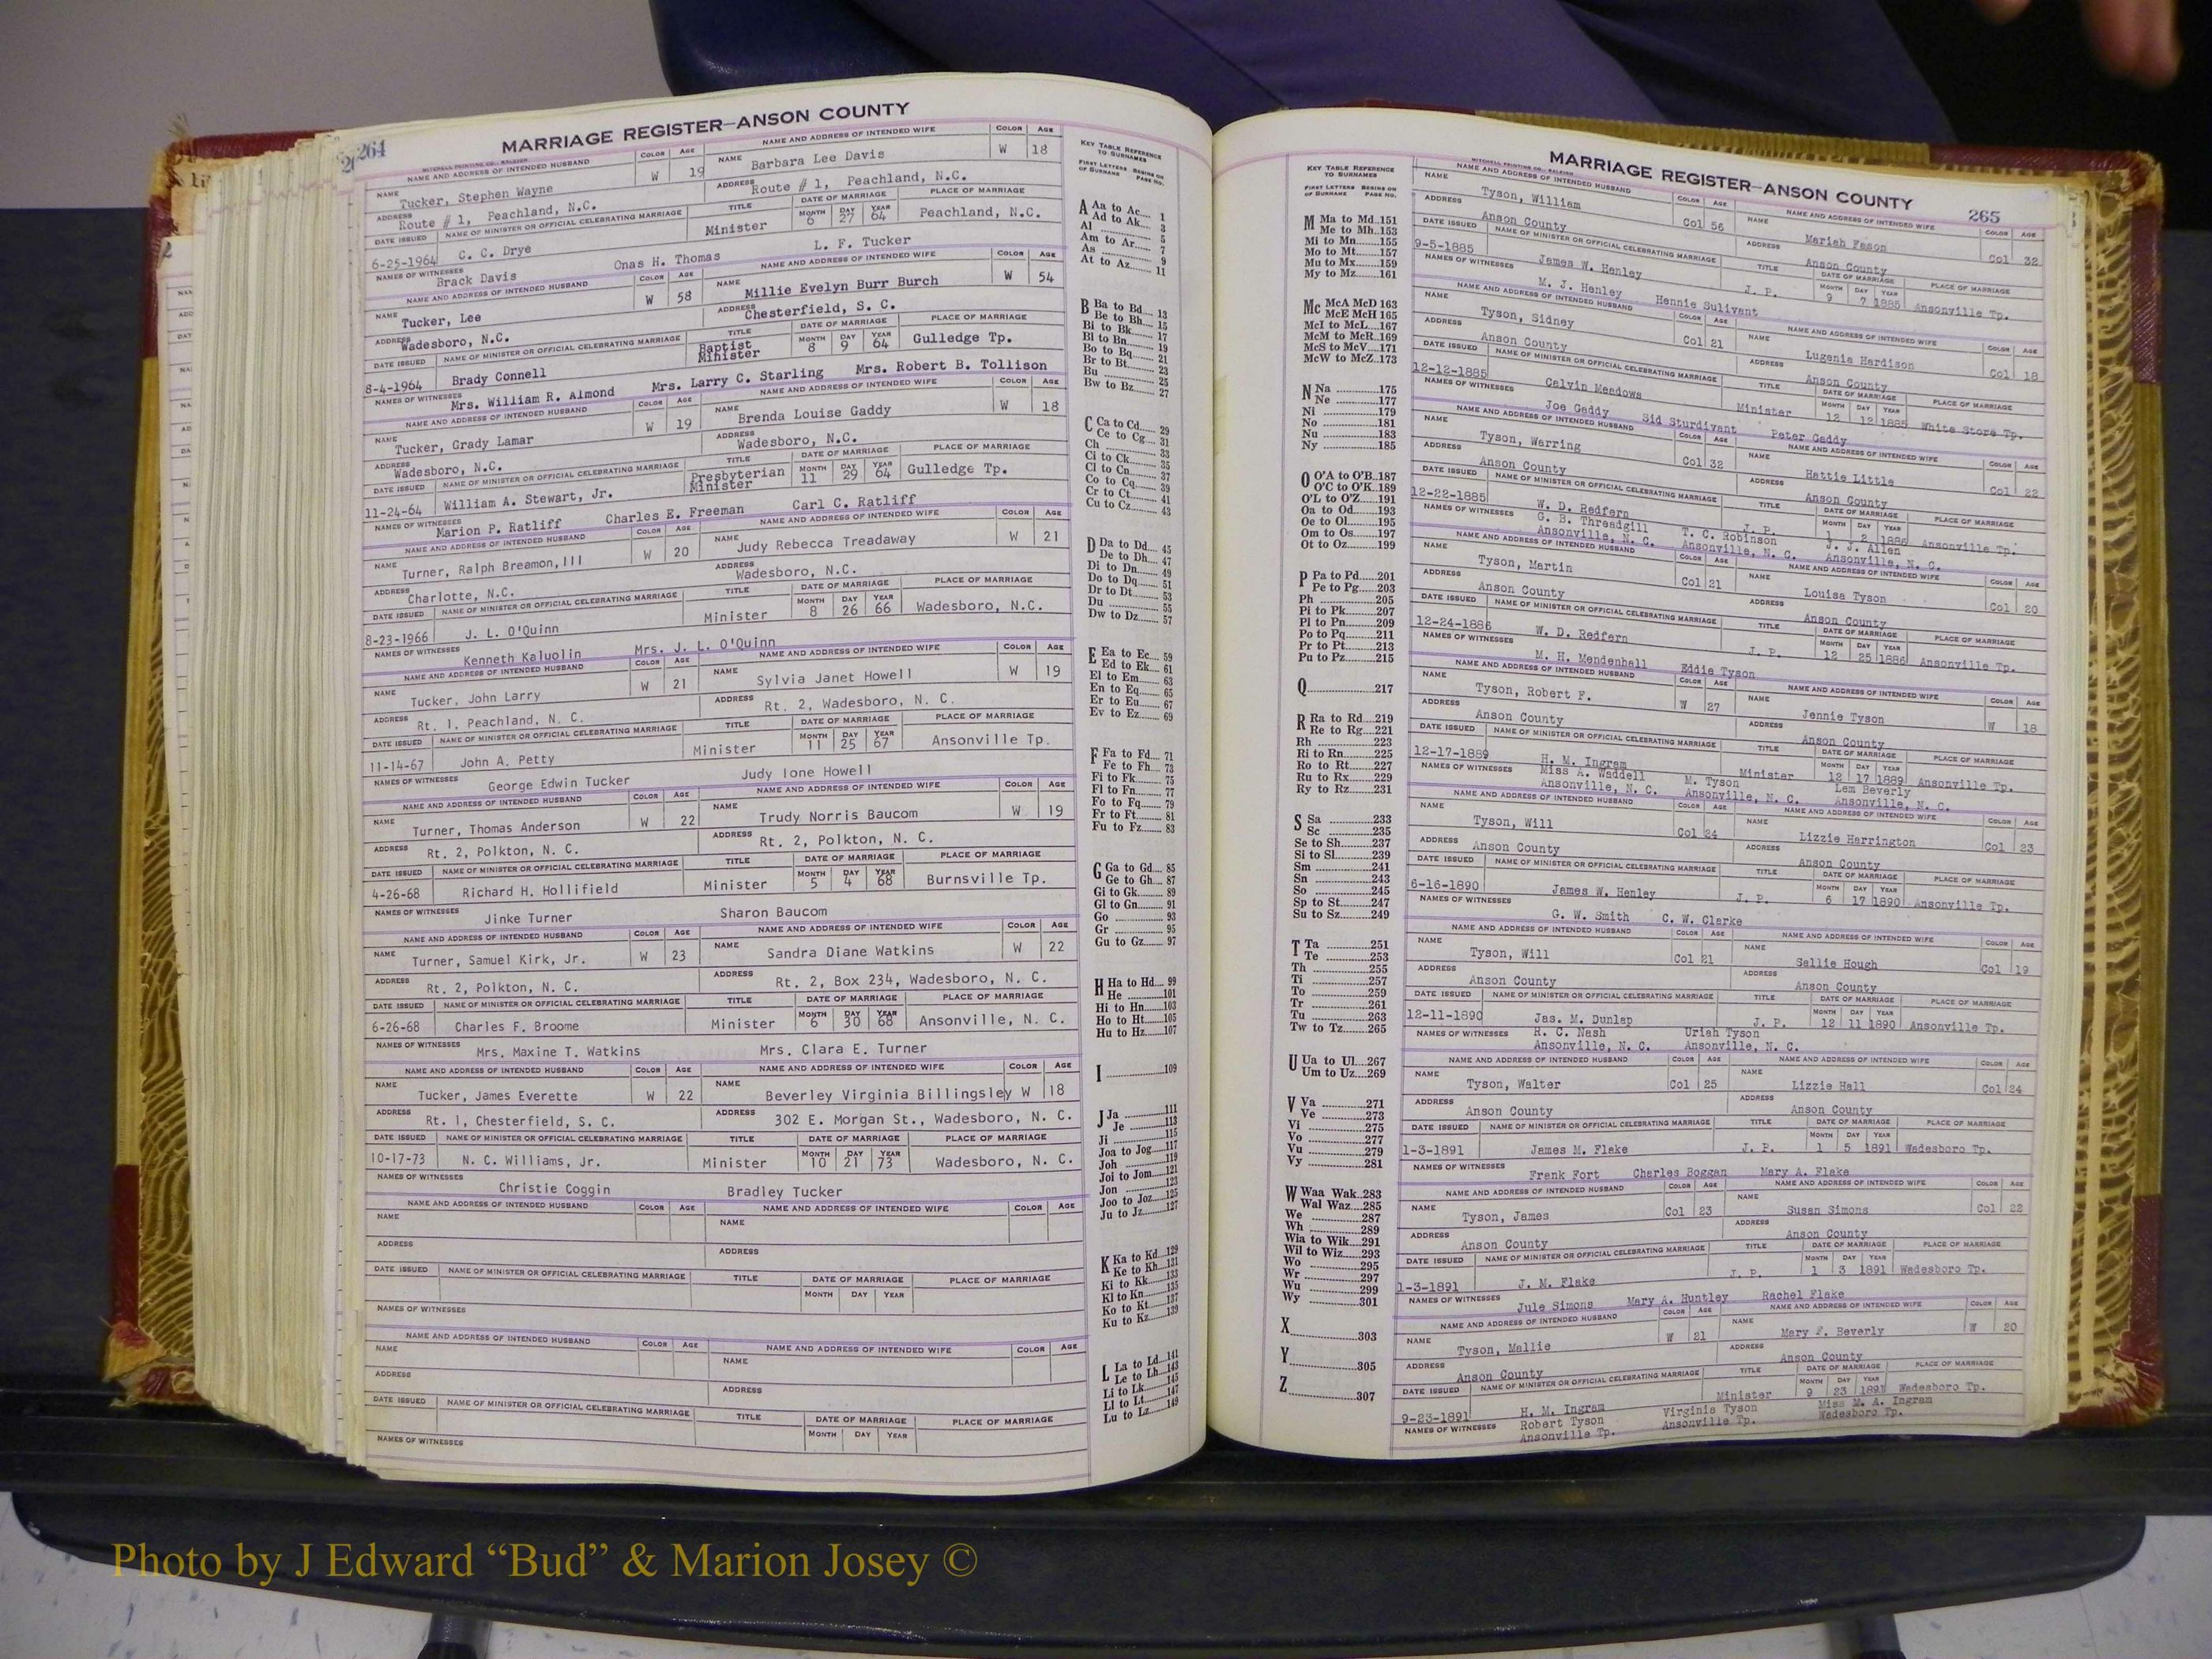 264
MARRIAGE REGISTER—ANSON COUNTY
MITCHELL PRINTING CO., RALEIGH
NAME AND ADDRESS OF INTENDED HUSBAND COLOR AGE NAME AND ADDRESS OF INTENDED WIFE COLOR AGE
NAME Tucker, Stephen Wayne W 19 NAME Barbara Lee Davis W 18
ADDRESS Route # 1, Peachland, N.C. ADDRESS Route # 1, Peachland, N.C.
DATE ISSUED NAME OF MINISTER OR OFFICIAL CELEBRATING MARRIAGE TITLE DATE OF MARRIAGE PLACE OF MARRIAGE
MONTH DAY YEAR
6-25-1964 C. C. Drye Minister 6 27 64 Peachland, N.C.
NAMES OF WITNESSES Brack Davis Onas H. Thomas L. F. Tucker
NAME AND ADDRESS OF INTENDED HUSBAND COLOR AGE NAME AND ADDRESS OF INTENDED WIFE COLOR AGE
NAME Tucker, Lee W 58 NAME Millie Evelyn Burr Burch W 54
ADDRESS Wadesboro, N.C. ADDRESS Chesterfield, S. C.
DATE ISSUED NAME OF MINISTER OR OFFICIAL CELEBRATING MARRIAGE TITLE DATE OF MARRIAGE PLACE OF MARRIAGE
MONTH DAY YEAR
8-4-1964 Brady Connell Baptist Minister 8 9 64 Gulledge Tp.
NAMES OF WITNESSES Mrs. William R. Almond Mrs. Larry C. Starling Mrs. Robert B. Tollison
NAME AND ADDRESS OF INTENDED HUSBAND COLOR AGE NAME AND ADDRESS OF INTENDED WIFE COLOR AGE
NAME Tucker, Grady Lamar W 19 NAME Brenda Louise Gaddy W 18
ADDRESS Wadesboro, N.C. ADDRESS Wadesboro, N.C.
DATE ISSUED NAME OF MINISTER OR OFFICIAL CELEBRATING MARRIAGE TITLE DATE OF MARRIAGE PLACE OF MARRIAGE
MONTH DAY YEAR
11-24-64 William A. Stewart, Jr. Presbyterian Minister 11 29 64 Gulledge Tp.
NAMES OF WITNESSES Marion P. Ratliff Charles E. Freeman Carl C. Ratliff
NAME AND ADDRESS OF INTENDED HUSBAND COLOR AGE NAME AND ADDRESS OF INTENDED WIFE COLOR AGE
NAME Turner, Ralph Breamon, III W 20 NAME Judy Rebecca Treadaway W 21
ADDRESS Charlotte, N.C. ADDRESS Wadesboro, N.C.
DATE ISSUED NAME OF MINISTER OR OFFICIAL CELEBRATING MARRIAGE TITLE DATE OF MARRIAGE PLACE OF MARRIAGE
MONTH DAY YEAR
8-23-1966 J. L. O'Quinn Minister 8 26 66 Wadesboro, N.C.
NAMES OF WITNESSES Kenneth Kaluolin Mrs. J. L. O'Quinn
NAME AND ADDRESS OF INTENDED HUSBAND COLOR AGE NAME AND ADDRESS OF INTENDED WIFE COLOR AGE
NAME Tucker, John Larry W 21 NAME Sylvia Janet Howell W 19
ADDRESS Rt. 1, Peachland, N. C. ADDRESS Rt. 2, Wadesboro, N. C.
DATE ISSUED NAME OF MINISTER OR OFFICIAL CELEBRATING MARRIAGE TITLE DATE OF MARRIAGE PLACE OF MARRIAGE
MONTH DAY YEAR
11-14-67 John A. Petty Minister 11 25 67 Ansonville Tp.
NAMES OF WITNESSES George Edwin Tucker Judy Ione Howell
NAME AND ADDRESS OF INTENDED HUSBAND COLOR AGE NAME AND ADDRESS OF INTENDED WIFE COLOR AGE
NAME Turner, Thomas Anderson W 22 NAME Trudy Norris Baucom W 19
ADDRESS Rt. 2, Polkton, N. C. ADDRESS Rt. 2, Polkton, N. C.
DATE ISSUED NAME OF MINISTER OR OFFICIAL CELEBRATING MARRIAGE TITLE DATE OF MARRIAGE PLACE OF MARRIAGE
MONTH DAY YEAR
4-26-68 Richard H. Hollifield Minister 5 4 68 Burnsville Tp.
NAMES OF WITNESSES Jinke Turner Sharon Baucom
NAME AND ADDRESS OF INTENDED HUSBAND COLOR AGE NAME AND ADDRESS OF INTENDED WIFE COLOR AGE
NAME Turner, Samuel Kirk, Jr. W 23 NAME Sandra Diane Watkins W 22
ADDRESS Rt. 2, Polkton, N. C. ADDRESS Rt. 2, Box 234, Wadesboro, N. C.
DATE ISSUED NAME OF MINISTER OR OFFICIAL CELEBRATING MARRIAGE TITLE DATE OF MARRIAGE PLACE OF MARRIAGE
MONTH DAY YEAR
6-26-68 Charles F. Broome Minister 6 30 68 Ansonville, N. C.
NAMES OF WITNESSES Mrs. Maxine T. Watkins Mrs. Clara E. Turner
NAME AND ADDRESS OF INTENDED HUSBAND COLOR AGE NAME AND ADDRESS OF INTENDED WIFE COLOR AGE
NAME Tucker, James Everette W 22 NAME Beverley Virginia Billingsley W 18
ADDRESS Rt. 1, Chesterfield, S. C. ADDRESS 302 E. Morgan St., Wadesboro, N. C.
DATE ISSUED NAME OF MINISTER OR OFFICIAL CELEBRATING MARRIAGE TITLE DATE OF MARRIAGE PLACE OF MARRIAGE
MONTH DAY YEAR
10-17-73 N. C. Williams, Jr. Minister 10 21 73 Wadesboro, N. C.
NAMES OF WITNESSES Christie Coggin Bradley Tucker
NAME AND ADDRESS OF INTENDED HUSBAND COLOR AGE NAME AND ADDRESS OF INTENDED WIFE COLOR AGE
NAME NAME
ADDRESS ADDRESS
DATE ISSUED NAME OF MINISTER OR OFFICIAL CELEBRATING MARRIAGE TITLE DATE OF MARRIAGE PLACE OF MARRIAGE
MONTH DAY YEAR
NAMES OF WITNESSES
NAME AND ADDRESS OF INTENDED HUSBAND COLOR AGE NAME AND ADDRESS OF INTENDED WIFE COLOR AGE
NAME NAME
ADDRESS ADDRESS
DATE ISSUED NAME OF MINISTER OR OFFICIAL CELEBRATING MARRIAGE TITLE DATE OF MARRIAGE PLACE OF MARRIAGE
MONTH DAY YEAR
NAMES OF WITNESSES
KEY TABLE REFERENCE
TO SURNAMES
FIRST LETTERS BEGINS ON
OF SURNAME PAGE NO.
A Aa to Ac 1
Ad to Ak 3
Al 5
Am to Ar 7
As 9
At to Az 11
B Ba to Bd 13
Be to Bh 15
Bi to Bk 17
Bl to Bn 19
Bo to Bq 21
Br to Bt 23
Bu 25
Bw to Bz 27
C Ca to Cd 29
Ce to Cg 31
Ch 33
Ci to Ck 35
Cl to Cn 37
Co to Cq 39
Cr to Ct 41
Cu to Cz 43
D Da to Dd 45
De to Dh 47
Di to Dn 49
Do to Dq 51
Dr to Dt 53
Du 55
Dw to Dz 57
E Ea to Ec 59
Ed to Ek 61
El to Em 63
En to Eq 65
Er to Eu 67
Ev to Ez 69
F Fa to Fd 71
Fe to Fh 73
Fi to Fk 75
Fl to Fn 77
Fo to Fq 79
Fr to Ft 81
Fu to Fz 83
G Ga to Gd 85
Ge to Gh 87
Gi to Gk 89
Gl to Gn 91
Go 93
Gr 95
Gu to Gz 97
H Ha to Hd 99
He 101
Hi to Hn 103
Ho to Ht 105
Hu to Hz 107
I 109
J Ja 111
Je 113
Ji 115
Joa to Jog 117
Joh 119
Joi to Jom 121
Jon 123
Joo to Joz 125
Ju to Jz 127
K Ka to Kd 129
Ke to Kh 131
Ki to Kk 133
Kl to Kn 135
Ko to Kt 137
Ku to Kz 139
L La to Ld 141
Le to Lh 143
Li to Lk 145
Ll to Lt 147
Lu to Lz 149
KEY TABLE REFERENCE
TO SURNAMES
FIRST LETTERS BEGINS ON
OF SURNAME PAGE NO.
M Ma to Md 151
Me to Mh 153
Mi to Mn 155
Mo to Mt 157
Mu to Mx 159
My to Mz 161
Mc McA McD 163
McE McH 165
McI to McL 167
McM to McR 169
McS to McV 171
McW to McZ 173
N Na 175
Ne 177
Ni 179
No 181
Nu 183
Ny 185
O O'A to O'B 187
O'C to O'K 189
O'L to O'Z 191
Oa to Od 193
Oe to Ol 195
Om to Os 197
Ot to Oz 199
P Pa to Pd 201
Pe to Pg 203
Ph 205
Pi to Pk 207
Pl to Pn 209
Po to Pq 211
Pr to Pt 213
Pu to Pz 215
Q 217
R Ra to Rd 219
Re to Rg 221
Rh 223
Ri to Rn 225
Ro to Rt 227
Ru to Rx 229
Ry to Rz 231
S Sa 233
Sc 235
Se to Sh 237
Si to Sl 239
Sm 241
Sn 243
So 245
Sp to St 247
Su to Sz 249
T Ta 251
Te 253
Th 255
Ti 257
To 259
Tr 261
Tu 263
Tw to Tz 265
U Ua to Ul 267
Um to Uz 269
V Va 271
Ve 273
Vi 275
Vo 277
Vu 279
Vy 281
W Waa Wak 283
Wal Waz 285
We 287
Wh 289
Wia to Wik 291
Wil to Wiz 293
Wo 295
Wr 297
Wu 299
Wy 301
X 303
Y 305
Z 307
MARRIAGE REGISTER—ANSON COUNTY 265
MITCHELL PRINTING CO., RALEIGH
NAME AND ADDRESS OF INTENDED HUSBAND COLOR AGE NAME AND ADDRESS OF INTENDED WIFE COLOR AGE
NAME Tyson, William Col 56 NAME Mariah Fason Col 32
ADDRESS Anson County ADDRESS Anson County
DATE ISSUED NAME OF MINISTER OR OFFICIAL CELEBRATING MARRIAGE TITLE DATE OF MARRIAGE PLACE OF MARRIAGE
MONTH DAY YEAR
9-5-1885 James W. Henley J. P. 9 7 1885 Ansonville Tp.
NAMES OF WITNESSES M. J. Henley Hennie Sulivant
NAME AND ADDRESS OF INTENDED HUSBAND COLOR AGE NAME AND ADDRESS OF INTENDED WIFE COLOR AGE
NAME Tyson, Sidney Col 21 NAME Lugenia Hardison Col 18
ADDRESS Anson County ADDRESS Anson County
DATE ISSUED NAME OF MINISTER OR OFFICIAL CELEBRATING MARRIAGE TITLE DATE OF MARRIAGE PLACE OF MARRIAGE
MONTH DAY YEAR
12-12-1885 Calvin Meadows Minister 12 12 1885 White Store Tp.
NAMES OF WITNESSES Joe Gaddy Sid Sturdivant Peter Gaddy
NAME AND ADDRESS OF INTENDED HUSBAND COLOR AGE NAME AND ADDRESS OF INTENDED WIFE COLOR AGE
NAME Tyson, Warring Col 32 NAME Hattie Little Col 22
ADDRESS Anson County ADDRESS Anson County
DATE ISSUED NAME OF MINISTER OR OFFICIAL CELEBRATING MARRIAGE TITLE DATE OF MARRIAGE PLACE OF MARRIAGE
MONTH DAY YEAR
12-22-1885 W. D. Redfern J. P. 1 2 1886 Ansonville Tp.
NAMES OF WITNESSES G. B. Threadgill T. C. Robinson J. J. Allen
Ansonville, N. C. Ansonville, N. C. Ansonville, N. C.
NAME AND ADDRESS OF INTENDED HUSBAND COLOR AGE NAME AND ADDRESS OF INTENDED WIFE COLOR AGE
NAME Tyson, Martin Col 21 NAME Louisa Tyson Col 20
ADDRESS Anson County ADDRESS Anson County
DATE ISSUED NAME OF MINISTER OR OFFICIAL CELEBRATING MARRIAGE TITLE DATE OF MARRIAGE PLACE OF MARRIAGE
MONTH DAY YEAR
12-24-1886 W. D. Redfern J. P. 12 25 1886 Ansonville Tp.
NAMES OF WITNESSES M. H. Mendenhall Eddie Tyson
NAME AND ADDRESS OF INTENDED HUSBAND COLOR AGE NAME AND ADDRESS OF INTENDED WIFE COLOR AGE
NAME Tyson, Robert F. W 27 NAME Jennie Tyson W 18
ADDRESS Anson County ADDRESS Anson County
DATE ISSUED NAME OF MINISTER OR OFFICIAL CELEBRATING MARRIAGE TITLE DATE OF MARRIAGE PLACE OF MARRIAGE
MONTH DAY YEAR
12-17-1889 H. M. Ingram Minister 12 17 1889 Ansonville Tp.
NAMES OF WITNESSES Miss A. Waddell M. Tyson Lem Beverly
Ansonville, N. C. Ansonville, N. C. Ansonville, N. C.
NAME AND ADDRESS OF INTENDED HUSBAND COLOR AGE NAME AND ADDRESS OF INTENDED WIFE COLOR AGE
NAME Tyson, Will Col 24 NAME Lizzie Harrington Col 23
ADDRESS Anson County ADDRESS Anson County
DATE ISSUED NAME OF MINISTER OR OFFICIAL CELEBRATING MARRIAGE TITLE DATE OF MARRIAGE PLACE OF MARRIAGE
MONTH DAY YEAR
6-16-1890 James W. Henley J. P. 6 17 1890 Ansonville Tp.
NAMES OF WITNESSES G. W. Smith C. W. Clarke
NAME AND ADDRESS OF INTENDED HUSBAND COLOR AGE NAME AND ADDRESS OF INTENDED WIFE COLOR AGE
NAME Tyson, Will Col 21 NAME Sallie Hough Col 19
ADDRESS Anson County ADDRESS Anson County
DATE ISSUED NAME OF MINISTER OR OFFICIAL CELEBRATING MARRIAGE TITLE DATE OF MARRIAGE PLACE OF MARRIAGE
MONTH DAY YEAR
12-11-1890 Jas. M. Dunlap J. P. 12 11 1890 Ansonville Tp.
NAMES OF WITNESSES R. C. Nash Uriah Tyson
Ansonville, N. C. Ansonville, N. C.
NAME AND ADDRESS OF INTENDED HUSBAND COLOR AGE NAME AND ADDRESS OF INTENDED WIFE COLOR AGE
NAME Tyson, Walter Col 25 NAME Lizzie Hall Col 24
ADDRESS Anson County ADDRESS Anson County
DATE ISSUED NAME OF MINISTER OR OFFICIAL CELEBRATING MARRIAGE TITLE DATE OF MARRIAGE PLACE OF MARRIAGE
MONTH DAY YEAR
1-3-1891 James M. Flake J. P. 1 5 1891 Wadesboro Tp.
NAMES OF WITNESSES Frank Fort Charles Boggan Mary A. Flake
NAME AND ADDRESS OF INTENDED HUSBAND COLOR AGE NAME AND ADDRESS OF INTENDED WIFE COLOR AGE
NAME Tyson, James Col 23 NAME Susan Simons Col 22
ADDRESS Anson County ADDRESS Anson County
DATE ISSUED NAME OF MINISTER OR OFFICIAL CELEBRATING MARRIAGE TITLE DATE OF MARRIAGE PLACE OF MARRIAGE
MONTH DAY YEAR
1-3-1891 J. M. Flake J. P. 1 3 1891 Wadesboro Tp.
NAMES OF WITNESSES Jule Simons Mary A. Huntley Rachel Flake
NAME AND ADDRESS OF INTENDED HUSBAND COLOR AGE NAME AND ADDRESS OF INTENDED WIFE COLOR AGE
NAME Tyson, Mallie W 21 NAME Mary F. Beverly W 20
ADDRESS Anson County ADDRESS Anson County
DATE ISSUED NAME OF MINISTER OR OFFICIAL CELEBRATING MARRIAGE TITLE DATE OF MARRIAGE PLACE OF MARRIAGE
MONTH DAY YEAR
9-23-1891 H. M. Ingram Minister 9 23 1891 Wadesboro Tp.
NAMES OF WITNESSES Robert Tyson Virginia Tyson Miss M. A. Ingram
Ansonville Tp. Ansonville Tp. Wadesboro Tp.
Photo by J Edward “Bud” & Marion Josey ©